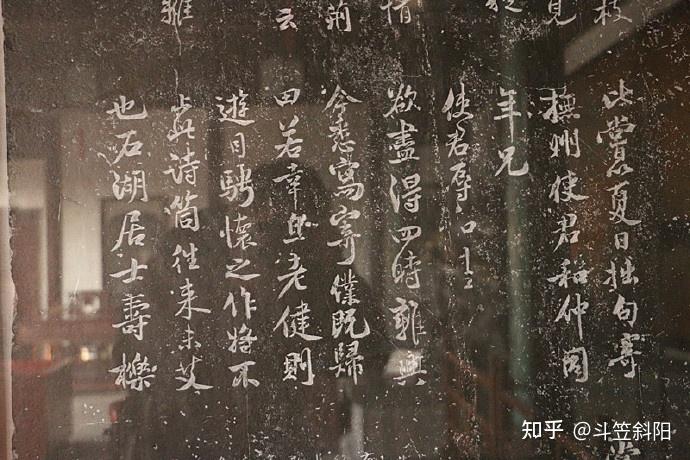 枝
見
云
比嘗以夏日拙句寄
撫州使君和仲同
年兄
使君辱
欲盡得四時雜興
今悉寫寄僕既歸
田若幸且老健則
遊目騁懷之作將不
止此詩筒往來未艾
也石湖居士壽櫟
知乎 @斗笠斜阳